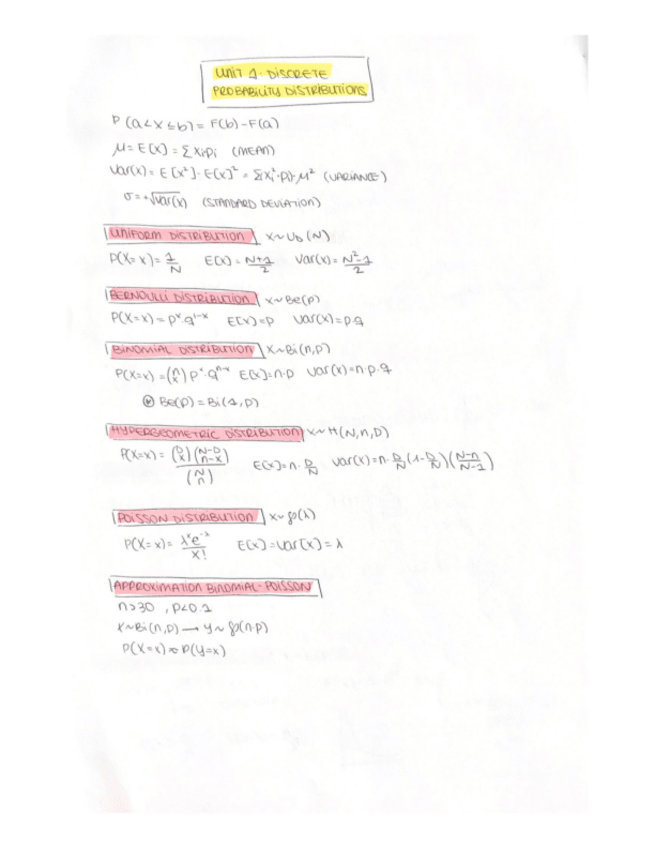 UNIT 1. DISCRETE
PROBABILITY DISTRIBUTIONS
P (a<x≤b) = F(b)-F(a)
μ = E[x] = Σ xipi (MEAN)
Var(x) = E[x²]-E[x]² = Σ(xi²·pi)-μ² (VARIANCE)
σ = +√Var(x) (STANDARD DEVIATION)
UNIFORM DISTRIBUTION x~UD (N)
P(X=x) = 1/N E(x) = N+1/2 Var(x) = N²-1/2
BERNOULLI DISTRIBUTION x~Be(p)
P(X=x) = pˣ·q¹⁻ˣ E[x]=p Var(x)=p·q
BINOMIAL DISTRIBUTION x~Bi(n,p)
P(X=x) = (n x) pˣ·qⁿ⁻ˣ E(x)=n·p Var(x)=n·p·q
⊛ Be(p) = Bi(1,p)
HYPERGEOMETRIC DISTRIBUTION x~H(N,n,D)
P(X=x) = (D x)(N-D n-x)/(N n) E(x)=n·D/N Var(x)=n·D/N(1-D/N)(N-n/N-1)
POISSON DISTRIBUTION x~℘(λ)
P(X=x) = λˣe⁻λ/x! E[x]=Var[x]=λ
APPROXIMATION BINOMIAL-POISSON
n>30 , p<0.1
x~Bi(n,p) → y~℘(n·p)
P(X=x) ≈ P(Y=x)